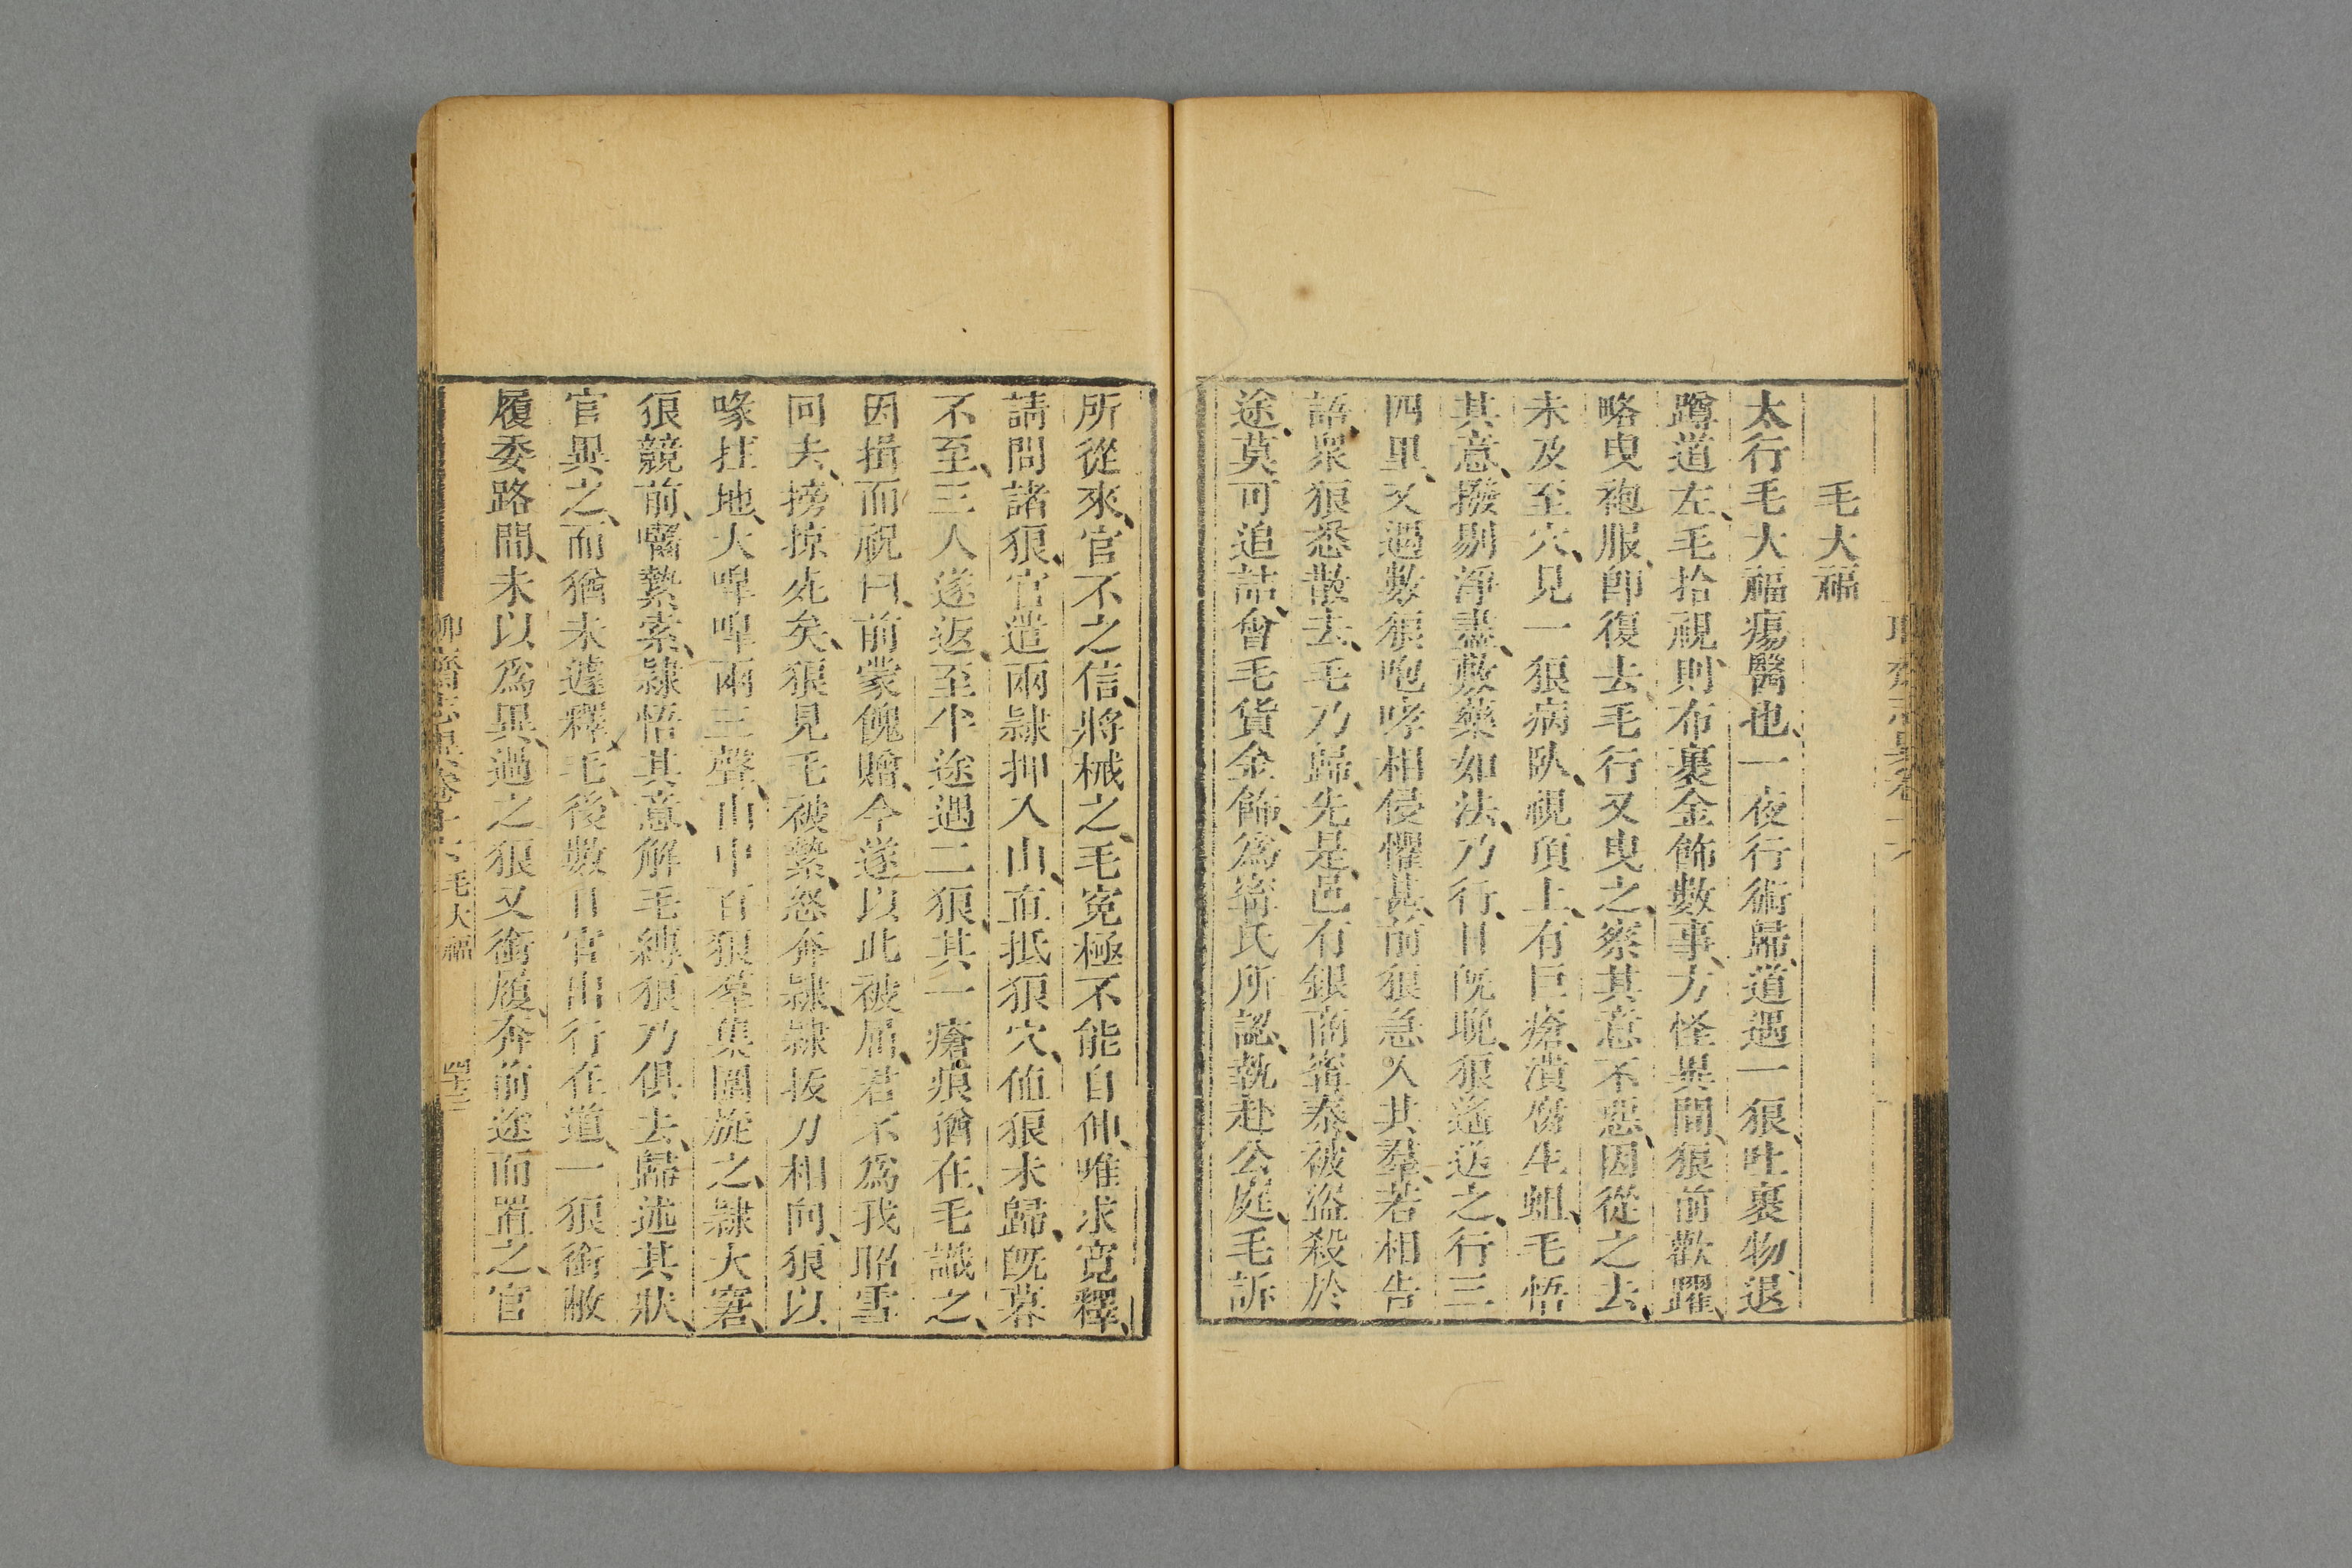 毛大福
太行毛大福瘍醫也、一夜行術歸、道遇一狼、吐裹物、退
蹲道左、毛拾視則布裹金飾數事、方怪異間、狼前歡躍、
略曳袍服、卽復去、毛行又曳之、察其意不惡、因從之去、
未及至穴、見一狼病臥、視頂上、有巨瘡、潰腐生蛆、毛悟
其意、撥剔淨盡、敷藥如法、乃行、日旣晚、狼遙送之、行三
四里、又遇數狼咆哮相侵懼甚、前狼急入其羣、若相告
語、衆狼悉散去、毛乃歸、先是、邑有銀商甯泰、被盜殺於
途、莫可追詰、會毛貨金飾、爲甯氏所認、執赴公庭、毛訴
所從來、官不之信、將械之、毛寃極不能自伸、唯求寬釋、
請問諸狼、官遣兩隷押入山、直抵狼穴、値狼未歸、旣暮
不至、三人遂返、至半途遇二狼、其一瘡痕猶在、毛識之、
因揖而祝曰、前蒙餽贈、今遂以此被屈、君不爲我昭雪
回去、搒掠死矣、狼見毛被縶、怒奔隷、隷拔刀相向、狼以
喙拄地、大嘷嘷兩三聲、山中百狼羣集圍旋之、隷大窘、
狼競前、囓縶索、隷悟其意、解毛縛、狼乃俱去、歸述其狀、
官異之、而猶未遽釋毛、後數日官出行在道、一狼銜敝
履委路間、未以爲異、過之狼又銜履、奔前途而置之、官
聊齋志異卷十六 毛大福 四十三